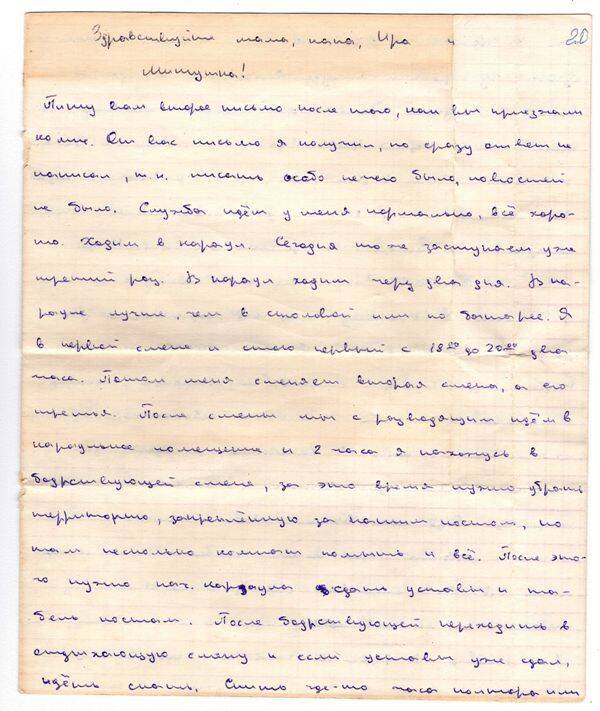 20
Здравствуйте мама, папа, Ира и
Мишутка!
Пишу вам второе письмо после того, как вы приезжали
ко мне. От вас письмо я получил, но сразу ответ не
написал, т.к. писать особо нечего было, новостей
не было. Служба идёт у меня нормально, всё хоро-
шо. Ходим в караул. Сегодня тоже заступаем уже
третий раз. В караул ходим через два дня. В ка-
рауле лучше, чем в столовой или по батарее. Я
в первой смене и стою первый с 18 00 до 20 00 два
часа. Потом меня сменяет вторая смена, а его
третья. После смены мы с разводящим идём в
караульное помещение и 2 часа я нахожусь в
бодрствующей смене, за это время нужно убрать
территорию, закреплённую за нашим постом, но
там несколько комнат помыть и всё. После это-
го нужно нач. караула сдать уставы и та-
бель постам. После бодрствующей переходить в
отдыхающую смену и если уставы уже сдал,
идёшь спать. Спишь где-то часа полтора или